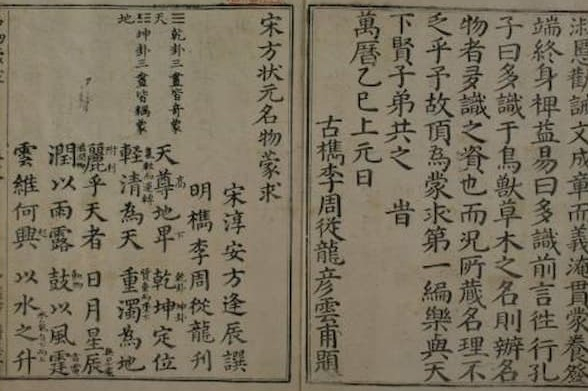 文成章而義流貫蒙養
端終身裨益易曰多識前言徃行孔
子曰多識于鳥獸草木之名則辦名
物者多識之資也而況所蔵名理不
乏乎予故頂為蒙求第一編樂與天
下賢子弟共之 旹
萬曆乙巳上元日
古檇李周從龍彦雲甫題
宋方状元名物蒙求
☰乾卦三畫皆竒蒙
天
☷坤卦三畫皆耦蒙
地
宋淳安方逢辰譔
明檇李周從龍刋
天尊高地卑下 乾坤乾卦 坤卦定位
輕清為天 重濁為地
麗乎天者 日月星辰
潤以雨露 鼓以風霆
雲維何興 以水之升